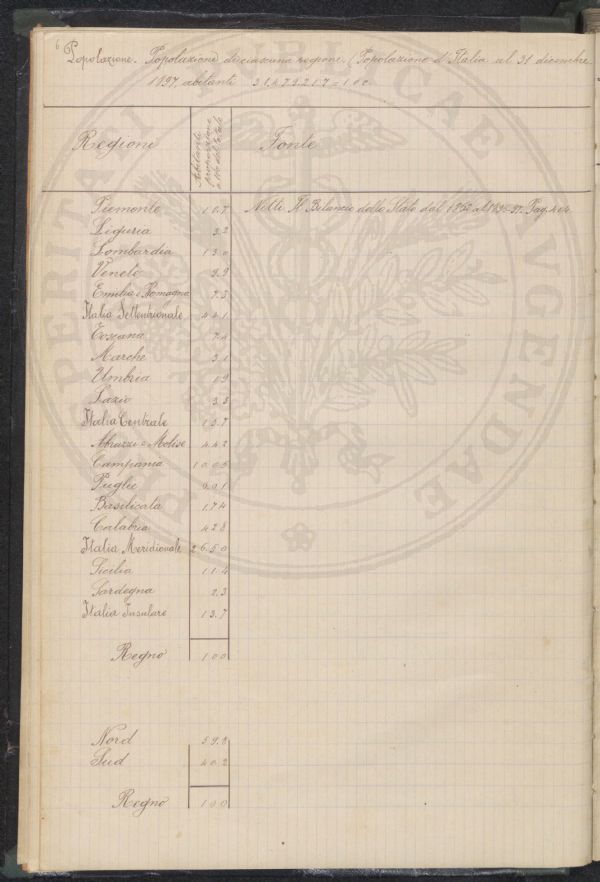 6
Popolazione. Popolazione di ciascuna regione. (Popolazione d'Italia al 31 dicembre
1897, abitanti 31.479.217 = 100
Regioni Abitanti proporzione a 100 del totale Fonte
Piemonte 10.7 Nitti Il Bilancio dello Stato dal 1862 al 1896-97. Pag. 404
Liguria 3.2
Lombardia 13.0
Veneto 9.9
Emilia e Romagna 7.3
Italia Settentrionale 44.1
Toscana 7.4
Marche 3.1
Umbria 1.9
Lazio 3.3
Italia Centrale 15.7
Abruzzi e Molise 4.42
Campania 10.05
Puglie 6.01
Basilicata 1.74
Calabria 4.28
Italia Meridionale 26.50
Sicilia 11.4
Sardegna 2.3
Italia Insulare 13.7
Regno 100
Nord 59.8
Sud 40.2
Regno 100
PROSPERITATI PUBLICAE AVIENDAE